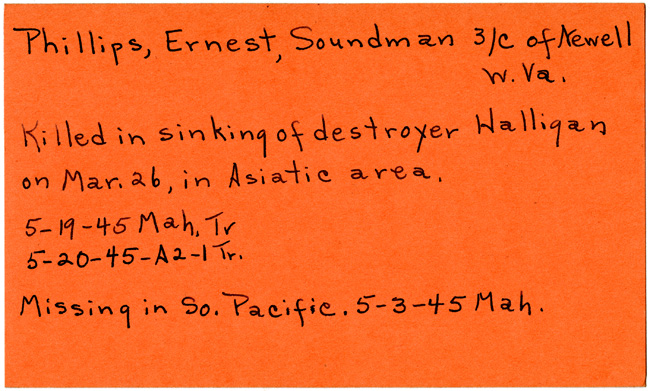 Phillips, Ernest, Soundman 3/c of Newell
W. Va.
Killed in sinking of destroyer Halligan
on Mar. 26, in Asiatic area.
5-19-45 Mah. Tr
5-20-45-A2-1 Tr.
Missing in So. Pacific. 5-3-45 Mah.